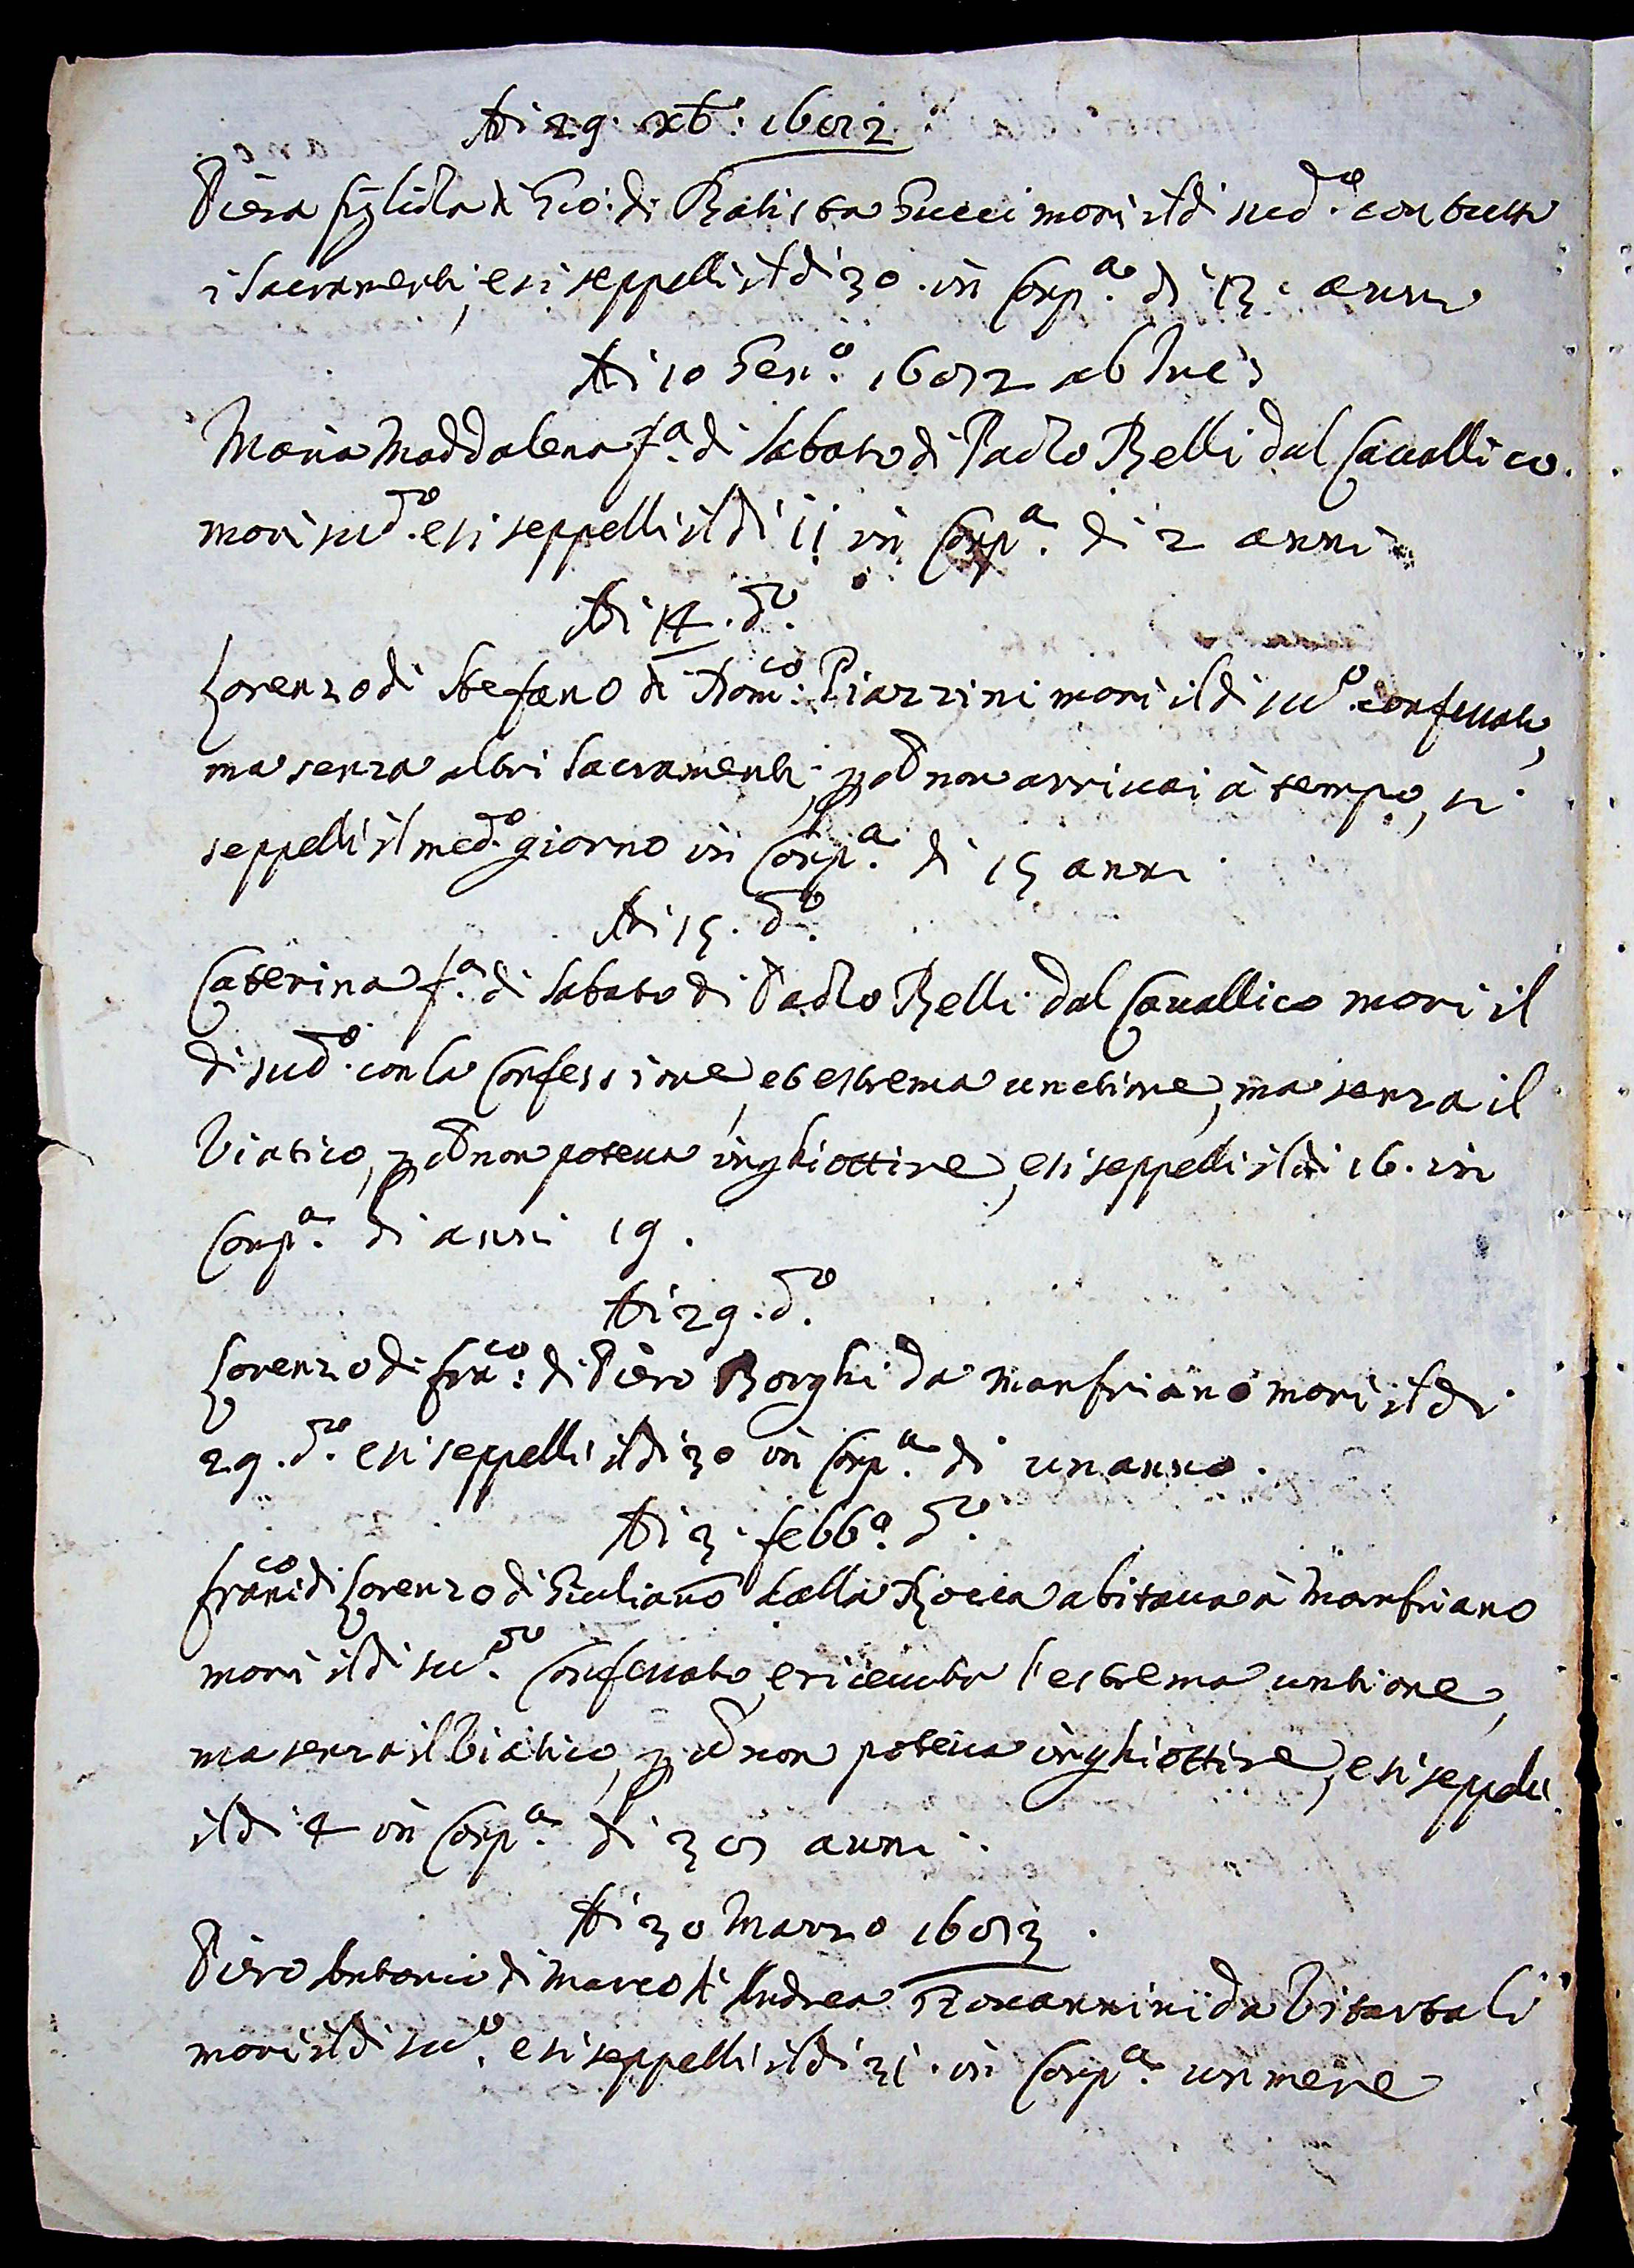 Adi 29. xb.e 1652
Piera figliola di Gio: di Batista Succi morì il dì sud.o con tutti
i Sacramenti, e si seppellì il dì 30. in Comp.a di 13. anni
Adi 10 Gen.o 1652 ab Inc.s
Maria Maddalena f.a di Sabato di Paolo Belli dal Cavallico.
morì sud.o e si seppellì il dì 11 in Comp.a di 2 anni
Adi 14. d.o
Lorenzo di Stefano di Dom.co Piazzini morì il dì sud.o confessato,
ma senza altri Sacramenti, p che non arrivai à tempo, si
seppellì il med.o giorno in Comp.a di 15 anni
Adi 15. d.o
Caterina f.a di Sabato di Paolo Belli dal Cavallico morì il
dì sud.o con la Confessione, et estrema unctione, ma senza il
Viatico, p che non poteva inghiottire, e si seppellì il dì 16. in
Comp.a di anni 19.
Adi 29. d.o
Lorenzo di Fra.co di Piero Borghi da Manfriano morì il dì
29. d.o e si seppellì il dì 30 in Comp.a di un anno.
Adi 3. febb.o d.o
Fran.co di Lorenzo di Giuliano dalla Rocca abitava à Manfriano
morì il dì sud.o Confessato, e ricevuto l'estrema untione,
ma senza il Viatico, p che non poteva inghiottire, e si seppellì
il dì 4 in Comp.a di 35 anni.
Adi 30 Marzo 1653.
Piero Antonio di Marco di Andrea Giovannini da Vitartali
morì il dì sud.o e si seppellì il dì 31. in Comp.a un mese